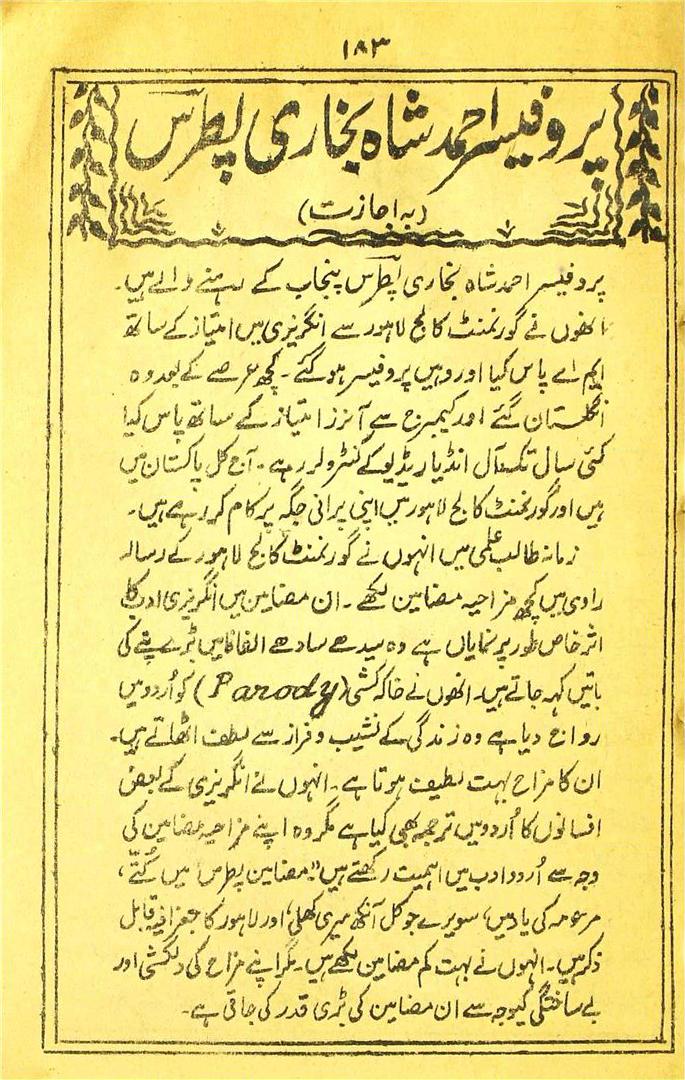 ۱۸۳
پروفیسر احمد شاہ بخاری پطرس
(بہ اجازت)
پروفیسر احمد شاہ بخاری پطرس پنجاب کے رہنے والے ہیں۔
انھوں نے گورنمنٹ کالج لاہور سے انگریزی میں امتیاز کے ساتھ
ایم اے پاس کیا اور وہیں پروفیسر ہو گئے۔ کچھ عرصے کے بعد وہ
انگلستان گئے اور کیمبرج سے آنرز امتیاز کے ساتھ پاس کیا
کئی سال تک آل انڈیا ریڈیو کے کنٹرولر رہے۔ آج کل پاکستان میں
ہیں اور گورنمنٹ کالج لاہور میں اپنی پرانی جگہ پر کام کر رہے ہیں۔
زمانہ طالب علمی میں انہوں نے گورنمنٹ کالج لاہور کے رسالہ
راوی میں کچھ مزاحیہ مضامین لکھے۔ ان مضامین میں انگریزی ادب کا
اثر خاص طور پر نمایاں ہے وہ سیدھے سادھے الفاظ میں بڑے پتے کی
باتیں کہہ جاتے ہیں۔ انھوں نے خاکہ کشی (Parody) کو اُردو میں
رواج دیا ہے وہ زندگی کے نشیب و فراز سے لطف اٹھاتے ہیں۔
ان کا مزاح بہت لطیف ہوتا ہے۔ انہوں نے انگریزی کے بعض
افسانوں کا اُردو میں ترجمہ بھی کیا ہے مگر وہ اپنے مزاحیہ مضامین کی
وجہ سے اُردو ادب میں اہمیت رکھتے ہیں "مضامین پطرس" میں کُتّے،
مرحومہ کی یاد میں، سویرے جو کل آنکھ میری کھلی، اور لاہور کا جغرافیہ قابل
ذکر ہیں۔ انہوں نے بہت کم مضامین لکھے ہیں۔ مگر اپنے مزاح کی دلکشی اور
بے ساختگی کیوجہ سے ان مضامین کی بڑی قدر کی جاتی ہے۔